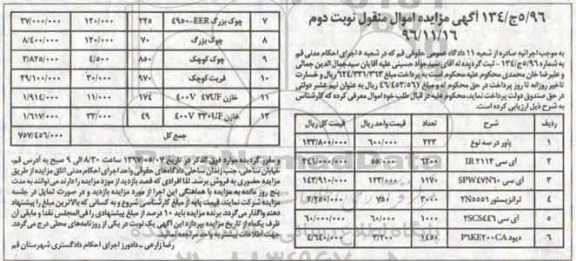 ۱۳٤/ج۵/۹۶ آگهی مزایده اموال منقول نوبت دوم
۹۶/۱۱/۱۶
به موجب اجرائیه صادره از شعبه ۱۱ دادگاه عمومی حقوقی قم که در شعبه ۵ اجرای احکام مدنی قم
به شماره ۱۳۴/ج۵/۹۶ ثبت گردیده له آقای سید جواد حسینی علیه آقایان سید جمال الدین جمالی
و علیرضا خان محمدی محکوم علیه محکوم است به پرداخت مبلغ ۶۲۴/۳۳۱/۳۶۲ ریال و خسارت
تاخیر روزانه تا روز پرداخت در حق محکوم له و مبلغ ۴۶/۴۵۳/۵۶۱ ریال به عنوان نیم عشر دولتی
در حق صندوق دولت پرداخت نماید، محکوم علیه در قبال طلب خود اموال معرفی کرده که کارشناس
به شرح ذیل ارزیابی کرده است.
ردیف شرح تعداد قیمت واحد ریال قیمت کل ریال
۱ پاور در سه نوع ۶۰۰/۰۰۰ ۱۳۳/۸۰۰/۰۰۰
۲ ای سی IR ۲۱۱۳ ۵۵/۰۰۰
۳ ای سی SPW۴۷N۶۰ ۱۱۷۰ ۱۲۳/۰۰۰ ۱۴۳/۹۱۰/۰۰۰
۴ ترانزیستور ۲N۵۵۵۱ ۳۰۰۰ ۷۵۰ ۲/۲۵۰/۰۰۰
۵ ای سی ۲SC۴۴۶۱ ۱۰۰۰ ۶۰/۰۰۰ ۶۰/۰۰۰/۰۰۰
۶ دیود P۶KE۲۰۰CA ۱۴۵۰ ۳/۲۰۰ ۴/۶۴۰/۰۰۰
۷ چوک بزرگ ۴۹۵۰-EER ۲۲۵ ۱۲۰/۰۰۰ ۲۷/۰۰۰/۰۰۰
۸ چوک بزرگ ۷۰ ۱۲۰/۰۰۰ ۸/۴۰۰/۰۰۰
۹ چوک کوچک ۸۵۰ ۴/۵۰۰ ۳/۸۲۵/۰۰۰
۱۰ فریت کوچک ۹۷۰ ۳۰/۰۰۰ ۲۹/۱۰۰/۰۰۰
۱۱ خازن ۴۰۰V ۴۷UF ۱۷۴ ۱۱/۰۰۰ ۱/۹۱۴/۰۰۰
۱۲ خازن ۴۰۰V ۳۳۰UF ۴۹ ۳۳/۰۰۰ ۱/۶۱۷/۰۰۰
جمع کل ۷۵۷/۴۵۶/۰۰۰
و مقرر گردیده موارد فوق الذکر در تاریخ ۱۳۹۷/۰۵/۰۳ ساعت ۸/۳۰ الی ۹ صبح به آدرس قم،
خیابان ساحلی، جنب زندان ساحلی دادگاه‌های حقوقی واحد اجرای احکام مدنی اتاق مزایده از طریق
مزایده حضوری به فروش برسد. لذا افرادی که قصد بازدید از مورد مزایده را دارند می‌توانند به مدت
پنج روز مانده به مزایده با هماهنگی این اجرا از مورد مزایده بازدید و در صورت تمایل در جلسه
مزایده شرکت نمایند. قیمت پایه از مبلغ کارشناسی شروع و به کسانی که بالاترین مبلغ را پیشنهاد
دهند واگذار می‌گردد. برنده مزایده باید ۱۰ درصد از مبلغ پیشنهادی را فی المجلس نقدا و مابقی آن
ظرف یکماه از تاریخ مزایده بپردازد این آگهی یک نوبت در یکی از روزنامه‌های محلی درج می‌گردد.
جهت اطلاعات بیشتر به واحد مزایده مراجعه نمائید.
رضا زارعی - دادورز اجرای احکام دادگستری شهرستان قم